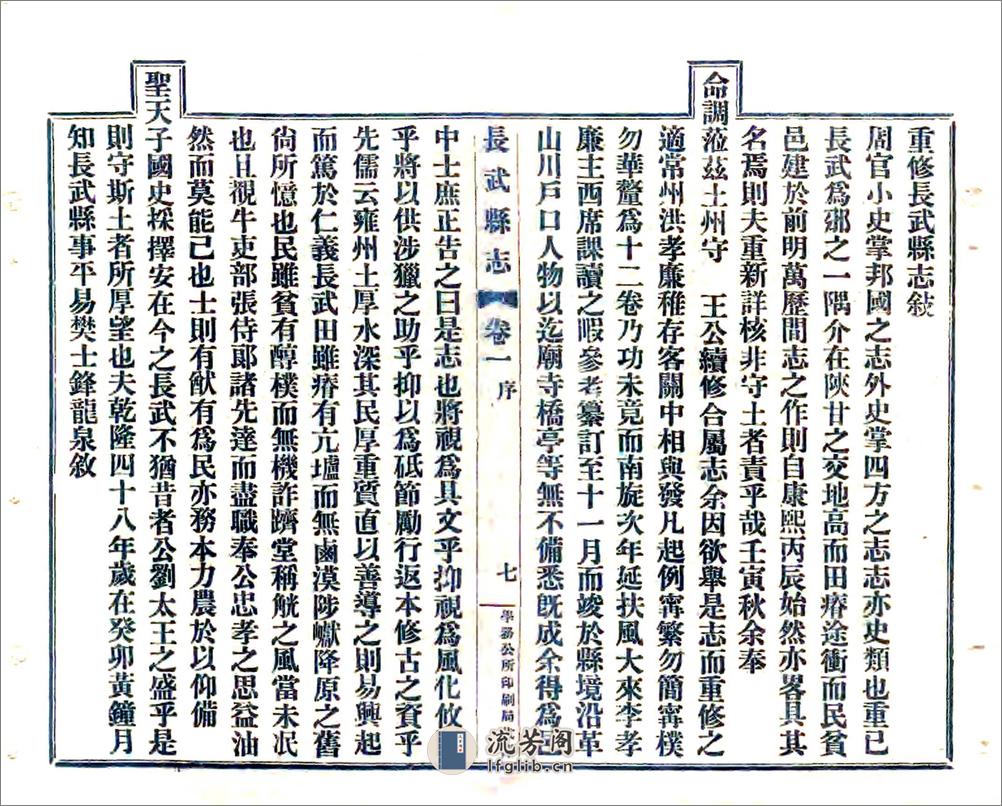 重修長武縣志敍
周官小史掌邦國之志外史掌四方之志志亦史類也重已
長武爲邠之一隅介在陝甘之交地高而田瘠途衝而民貧
邑建於前明萬歷間志之作則自康熙丙辰始然亦畧具其
名焉則夫重新詳核非守土者責乎哉壬寅秋余奉
命調蒞茲土州守 王公續修合屬志余因欲舉是志而重修之
適常州洪孝廉稚存客關中相與發凡起例寗繁勿簡寗樸
勿華釐爲十二卷乃功未竟而南旋次年延扶風大來李孝
廉主西席課讀之暇參考纂訂至十一月而竣於縣境沿革
山川戶口人物以迄廟寺橋亭等無不備悉旣成余得爲邑
長武縣志 卷一 序 七 學務公所印刷局
中士庶正告之曰是志也將視爲具文乎抑視爲風化攸
乎將以供涉獵之助乎抑以爲砥節勵行返本修古之資乎
先儒云雍州土厚水深其民厚重質直以善導之則易興起
而篤於仁義長武田雖瘠有亢壚而無鹵漠陟巘降原之舊
尙所憶也民雖貧有醇樸而無機詐躋堂稱觥之風當未泯
也且覩牛吏部張侍郞諸先達而盡職奉公忠孝之思益油
然而莫能已也士則有猷有爲民亦務本力農於以仰備
聖天子國史採擇安在今之長武不猶昔者公劉太王之盛乎是
則守斯土者所厚望也夫乾隆四十八年歲在癸卯黃鐘月
知長武縣事平易樊士鋒龍泉敘
流芳阁
lfglib.cn